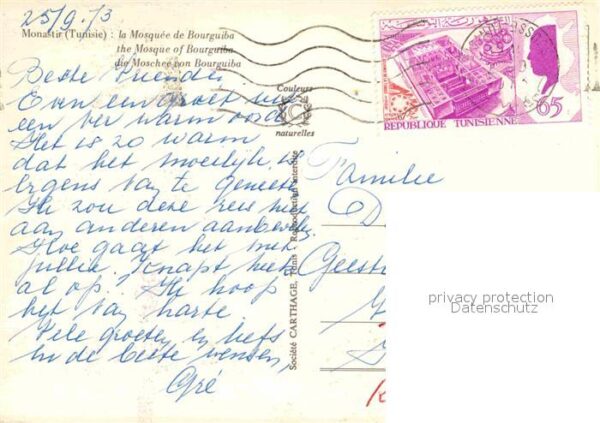 25/9 - 73
Monastir (Tunisie) : la Mosquée de Bourguiba
the Mosque of Bourguiba
die Moschee von Bourguiba
Beste Vrienden
Even een groet uit
een ver warm oord.
Het is zo warm
dat het moeilijk is
ergens van te genieten
Ik zou deze reis niet
aan anderen aanbevelen
Hoe gaat het met
jullie. Knapt hein
al op. Ik hoop
het van harte.
Vele groeten en liefs
en de beste wensen
Gré
Couleurs
naturelles
Société CARTHAGE, Tunis Reproduction interdite
REPUBLIQUE TUNISIENNE
65
Familie
D
Geest
privacy protection
Datenschutz